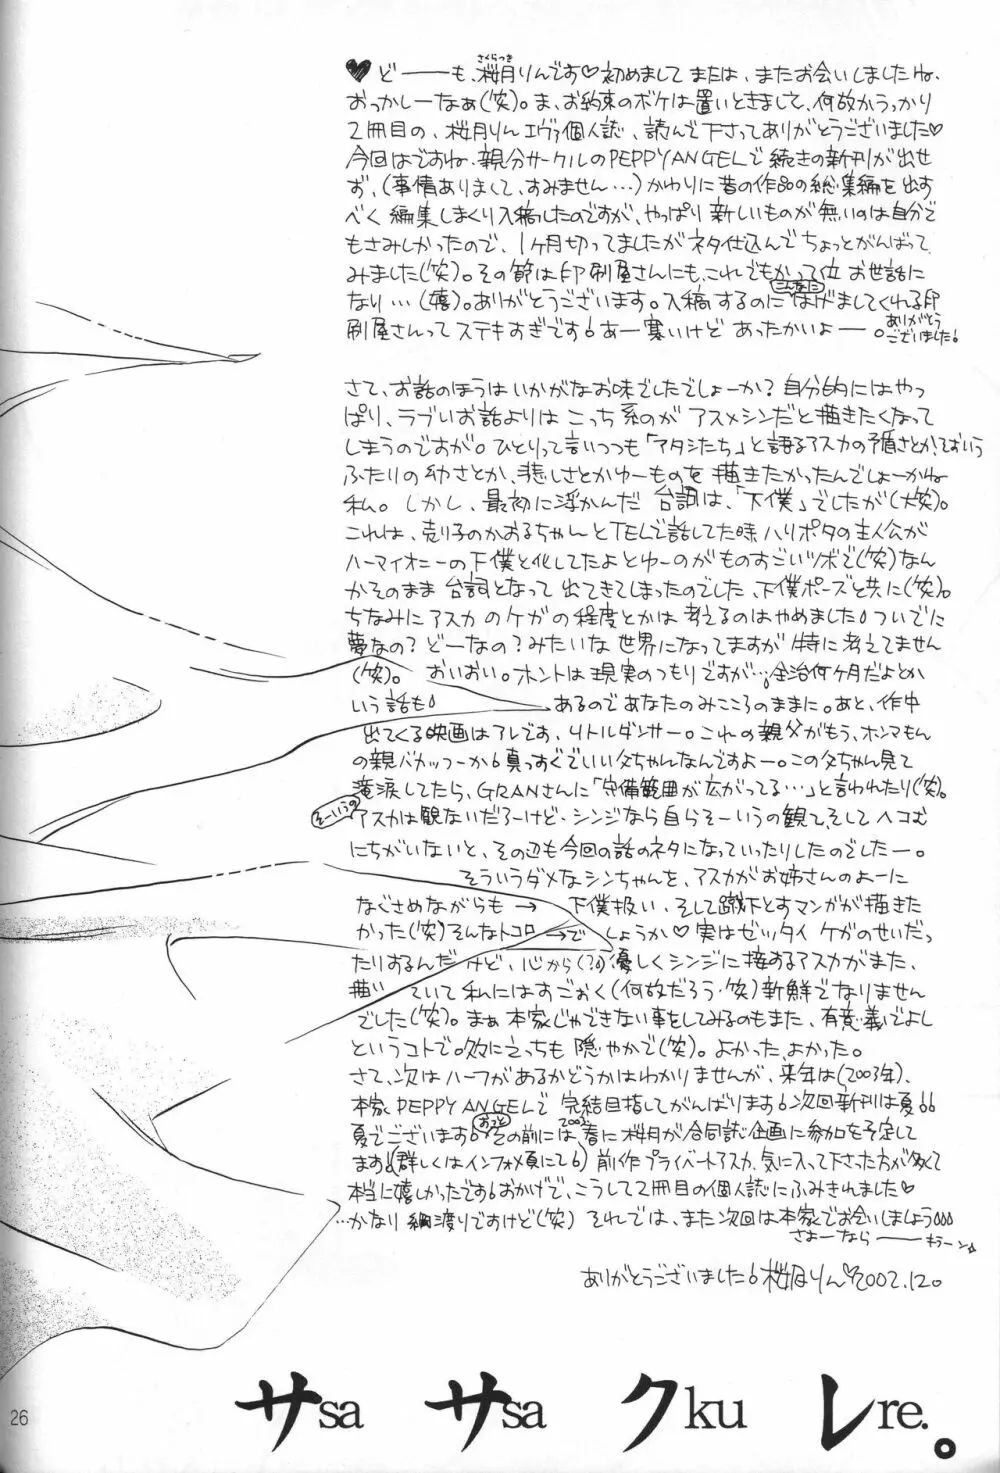 ♥どーーも、桜月りんです♡初めまして または、またお会いしましたね。
さくらつき
おっかしーなぁ(笑)。ま、お約束のボケは置いときまして、何故かうっかり
2冊目の、桜月りんエヴァ個人誌、読んで下さってありがとうございました♡
今回はですね、親分サークルのPEPPY ANGELで続きの新刊が出せ
ず、(事情ありまして、すみません…)かわりに昔の作品の総集編を出す
べく編集しまくり入稿したのですが、やっぱり新しいものが無いのは自分で
もさみしかったので、1ヶ月切ってましたがネタ仕込んでちょっとがんばって
みました(笑)。その節は印刷屋さんにも、これでもかって位お世話に
なり…(嬉)。ありがとうございます。入稿するのに こんなに はげましてくれる印
刷屋さんってステキすぎです!あー寒いけど あったかいよーー。ありがとうございました!
さて、お話のほうはいかがなお味でしたでしょーか?自分的にはやっ
ぱり、ラブいお話よりは こっち系のが アスカ×シンだと描きたくなって
しまうのですが。ひとりって言いつつも「アタシたち」と語るアスカの矛盾さとか、そおいう
ふたりの幼さとか、悲しさとかゆーものを 描きたかったんでしょーかね
私。しかし、最初に浮かんだ 台詞は、「下僕」でしたが(大笑)。
これは、売り子のかおるちゃんとTELで話してた時ハリポタの主人公が
ハーマイオニーの下僕と化してたよとゆーのがものすごいツボで(笑)なん
かそのまま 台詞となって 出てきてしまったのでした、下僕ポーズと共に(笑)。
ちなみに アスカ のケガの程度とかは 考えるのはやめました!ついでに
夢なの?どーなの?みたいな 世界になってますが 特に考えてません
(笑)。おいおい。ホントは現実のつもりですが…。全治何ヶ月だよとか
いう話も! あるのであなたのみこころのままに。あと、作中
出てくる映画はアレです、リトルダンサー。これの親父がもう、ホンマもん
の親バカッつーか!真っすぐでいい父ちゃんなんですよー。この父ちゃん見て
滝涙してたら、GRANさんに「守備範囲が広がってる…」と言われたり(笑)。
そーいうの アスカは観ないだろーけど・シンジなら自らそーいうの観て、そしてヘコむ
にちがいないと、その辺も今回の話のネタになっていったりしたのでしたー。
そういうダメなシンちゃんを、アスカがお姉さんのよーに
なぐさめながらも → 下僕扱い、そして蹴下とすマンガが描きた
かった(笑)そんなトコロ → で しょうか♡実はゼッタイ ケガのせいだっ
たりするんだ けど、心から(?)優しくシンジに接するアスカがまた、
描い ていて 私にはすごおく(何故だろう・笑)新鮮でなりません
でした(笑)。まぁ 本家じゃできない事をしてみるのもまた、有意義でよし
というコトで。次々にえっちも 穏やかで(笑)。よかった、よかった。
さて、次はハーフがあるかどうかはわかりませんが、来年は(2003年)、
本家 PEPPY ANGELで 完結目指してがんばります!次回新刊は夏!!
夏でございます! おっと その前には、2003 春に 桜月が合同誌企画に参加を予定して
ます!(詳しくはインフォメ頁にて!)前作プライベートアスカ、気に入って下さった方が多くて
本当に嬉しかったです!おかげで、こうして2冊目の個人誌にふみきれました♡
…かなり 綱渡りですけど(笑) それでは、また次回は本家でお会いしましょう。。。
さよーならーーー キラーン☆
ありがとうございました!桜月りん♡2002.12。
26
サsa サsa クku レre.。